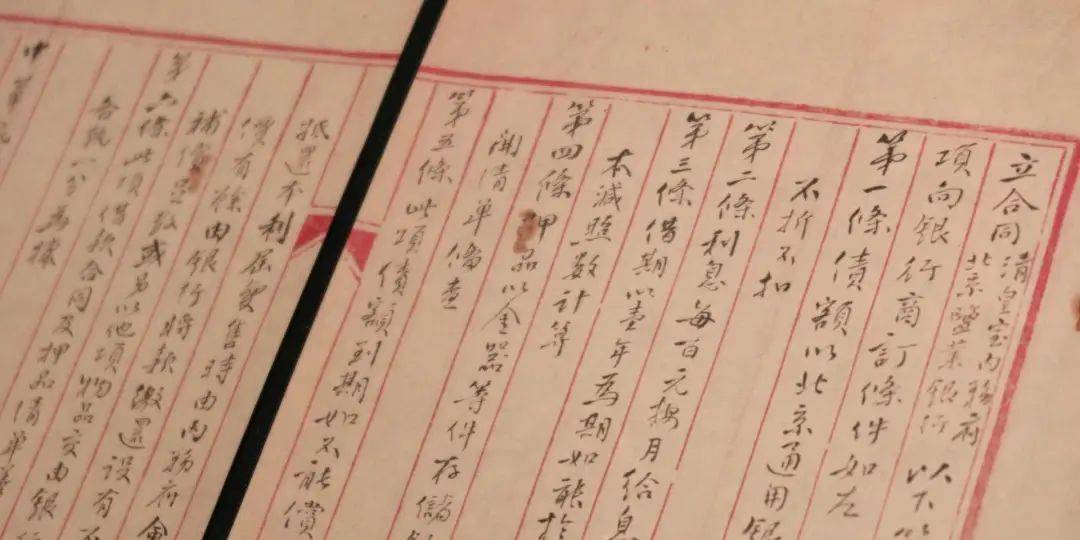 立合同清皇室内務府
北京鹽業銀行 以下
項向銀行商訂條件如左
第一條債額以北京通用銀
不折不扣
第二條利息每百元按月給息
第三條借期以壹年為期如能於
本減照數計算
第四條押品以金器等件存儲
開清單備查
第五條此項債額到期如不能償
抵還本利屆變售時由内務府會
價有餘由銀行將款繳還設有不
補償足數或另以他項物品交由銀
第六條此項借款合同及押品清單
各執一分為據
中華